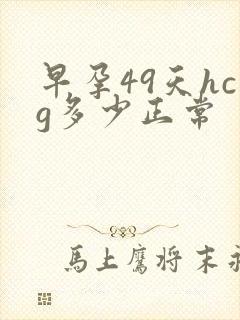 早孕49天hc
g多少正常
馬上鷹将末